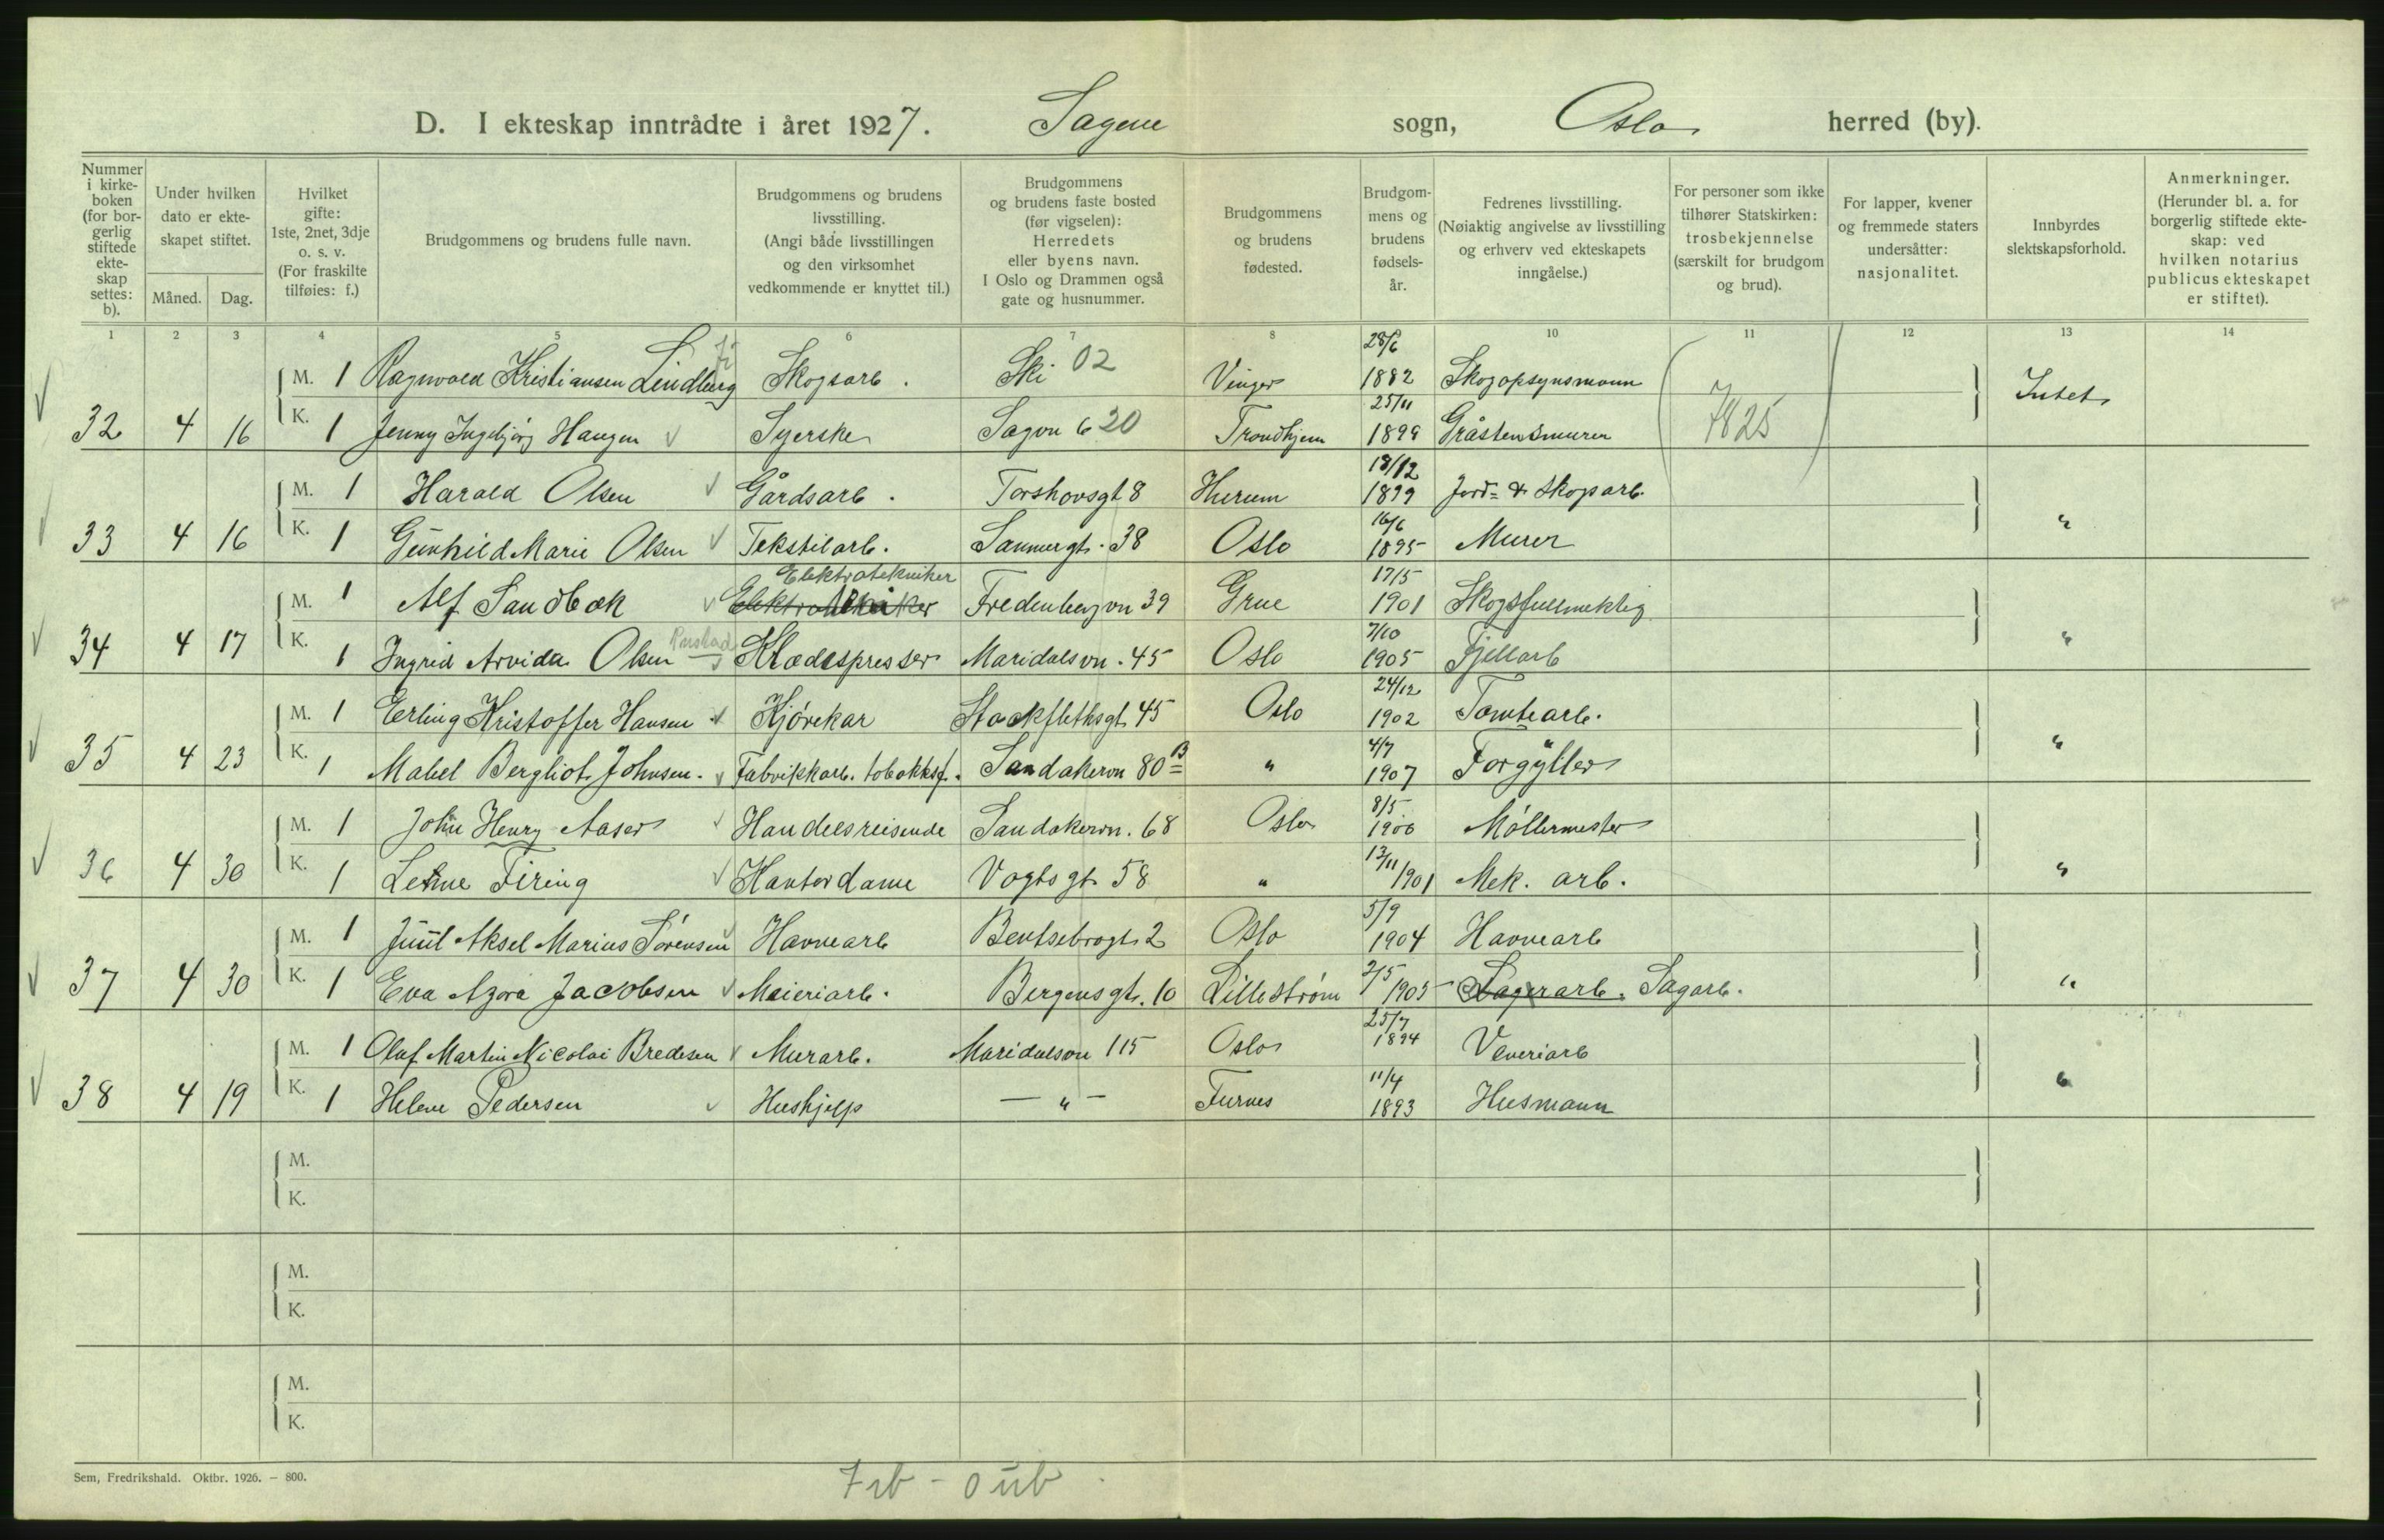 D. I ekteskap inntrådte i året 1927. Sagene sogn, Oslo herred (by).
Nummer i kirke-boken (for bor-gerlig stiftede ekte-skap settes: b).
Under hvilken dato er ekte-skapet stiftet.
Måned.
Dag.
Hvilket gifte: 1ste, 2net, 3dje o. s. v. (For fraskilte tilføies: f.)
Brudgommens og brudens fulle navn.
Brudgommens og brudens livsstilling. (Angi både livsstillingen og den virksomhet vedkommende er knyttet til.)
Brudgommens og brudens faste bosted (før vigselen): Herredets eller byens navn. I Oslo og Drammen også gate og husnummer.
Brudgommens og brudens fødested.
Brudgom-mens og brudens fødsels-år.
Fedrenes livsstilling. (Nøiaktig angivelse av livsstilling og erhverv ved ekteskapets inngåelse.)
For personer som ikke tilhører Statskirken: trosbekjennelse (særskilt for brudgom og brud).
For lapper, kvener og fremmede staters undersåtter: nasjonalitet.
Innbyrdes slektskapsforhold.
Anmerkninger. (Herunder bl. a. for borgerlig stiftede ekte-skap: ved hvilken notarius publicus ekteskapet er stiftet).
1 2 3 4 5 6 7 8 10 11 12 13 14
M. 1 Ragnvald Kristiansen Lindberg Skogsarb. Ski 02 Vinger 28/6 1882 Skogopsynsmann Intet
32 4 16 K. 1 Jenny Ingebjørg Haugen Syerske Sagvn 6 20 Trondhjem 25/11 1899 Gråstensmurer 7825
M. 1 Harald Olsen Gårdsarb. Torshovsgt 8 Hurum 18/12 1899 Jord- & skogsarb.
33 4 16 K. 1 Gunhild Marie Olsen Tekstilarb. Sannergt. 38 Oslo 16/6 1895 Murer "
M. 1 Alf Sandbæk Elektrotekniker Fredenborgvn 39 Grue 17/5 1901 Skogsfullmektig
34 4 17 K. 1 Ingrid Arvida Olsen Rustad Klædespresser Maridalsvn. 45 Oslo 7/10 1905 Fjellarb "
M. 1 Erling Kristoffer Hansen Kjørekar Stockflethsgt. 45 Oslo 24/12 1902 Tomtearb.
35 4 23 K. 1 Mabel Bergliot Johnsen. Fabrikkarb. tobakksf. Sandakervn 80 B " 4/7 1907 Forgyller "
M. 1 John Henry Aaser Handelsreisende Sandakervn. 68 Oslo 8/5 1900 Møllermester
36 4 30 K. 1 Firing Kontordame Vogtsgt. 58 " 13/11 1901 Mek. arb. "
M. 1 Juul Aksel Marius Sørensen Havnearb Bentsebrogt. 2 Oslo 5/9 1904 Havnearb
37 4 30 K. 1 Eva Azora Jacobsen Meieriarb. Bergensgt. 10 Lillestrøm 2/5 1905 Lagerarb. Sagarb. "
M. 1 Olaf Martin Nicolai Bredesen Murarb. Maridalsvn 115 Oslo 25/7 1894 Veveriarb
38 4 19 K. 1 Helene Pedersen Hushjelp — " — Furnes 11/4 1893 Husmann "
M.
K.
M.
K.
M.
K.
Sem, Fredrikshald. Oktbr. 1926. – 800.
7 ib - 0 üb